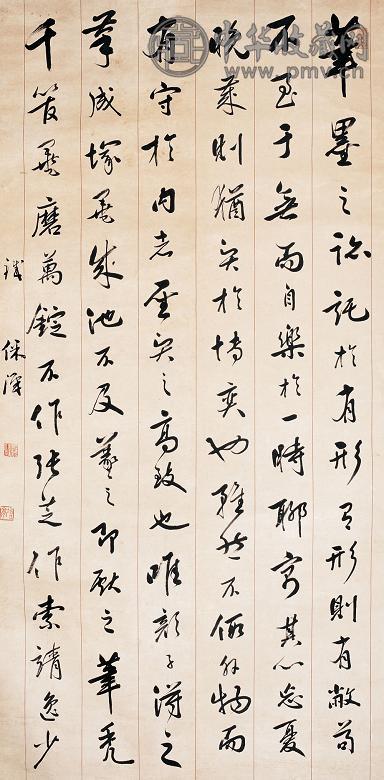 中华收藏网
www.pmv.cn
筆墨之迹託於有形有形則有敝苟
不至于無而自樂於一時聊寓其心忘憂
晚歲則猶賢於博奕也雖然不假外物而
有守於內者聖賢之高致也唯顏子得之
筆成塚墨成池不及羲之即獻之筆禿
千管墨磨萬錠不作張芝作索靖逸少
鐵保